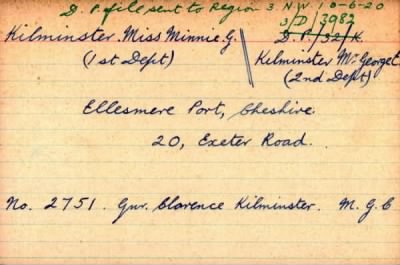 D. P. file sent to Region 3. N.W. 10-6-20
3/D/3982
D.P./32/K.
Kilminster. Miss Minnie G.
(1st Dept)
Kilminster Mr George T.
(2nd Dept)
Ellesmere Port, Cheshire.
20, Exeter Road.
No. 2751. Gnr. Clarence Kilminster. M.G.C